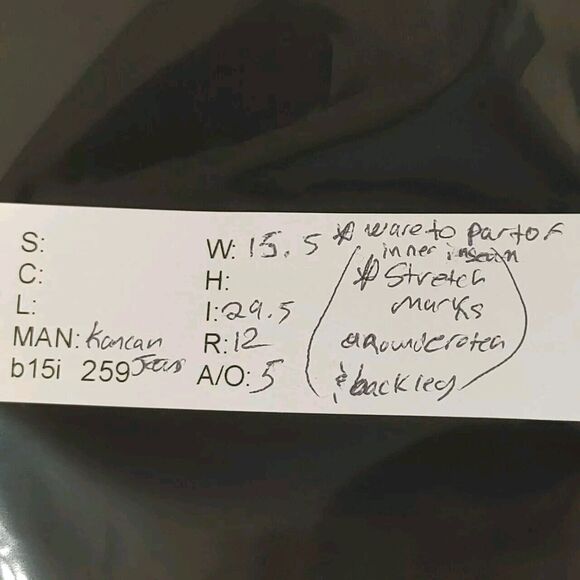 S:
C:
L:
MAN: Kancan
b15i 259 Jeans
W: 15.5
H:
I: 29.5
R: 12
A/O: 5
* ware to part of
inner inseam
* Stretch
marks
around crotch
& back leg